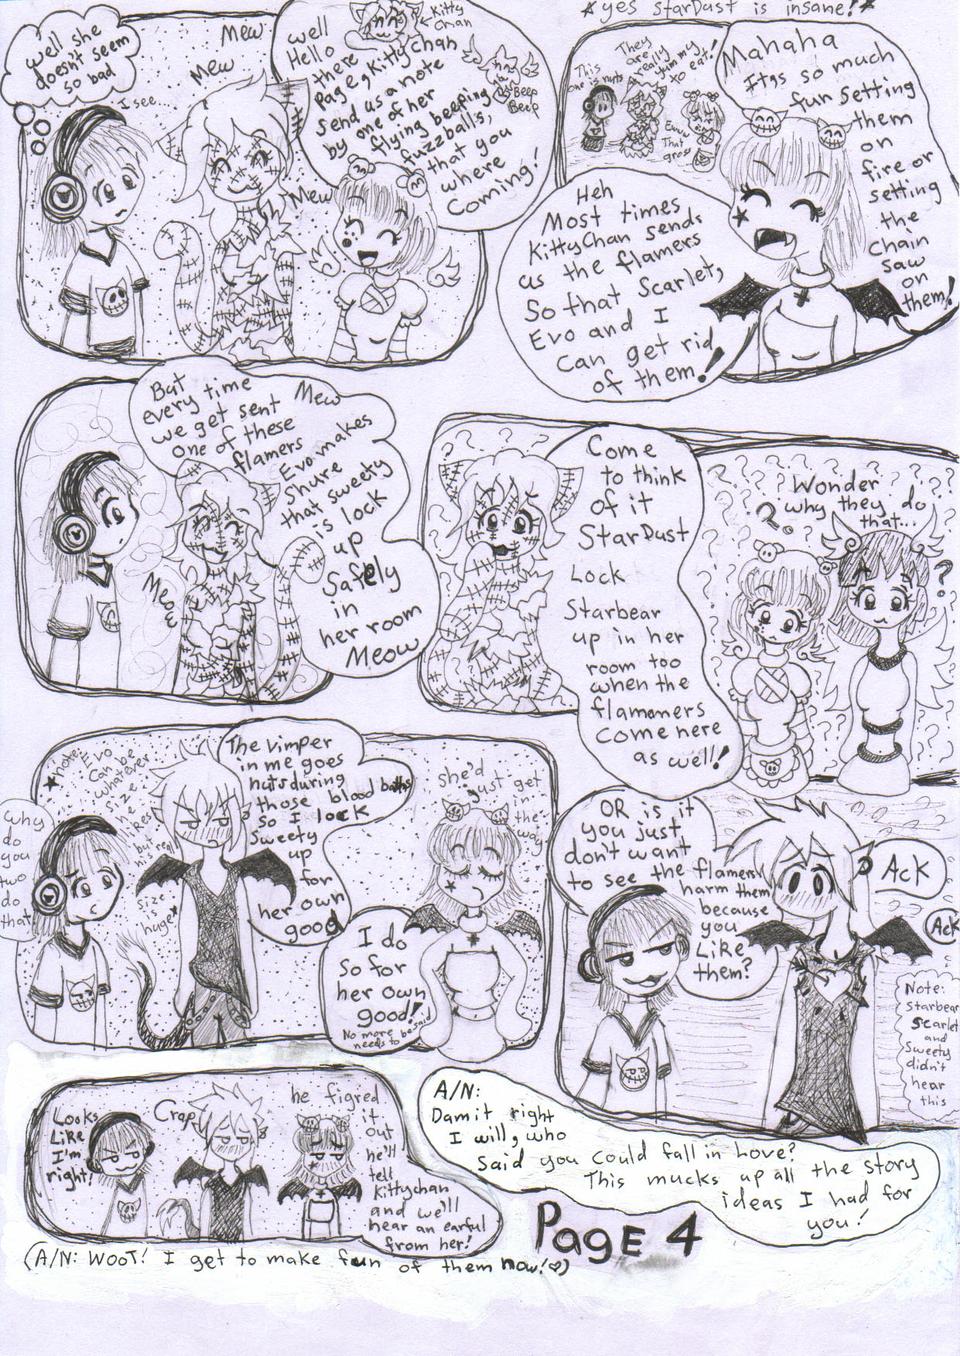 well she
doesn't seem
so bad
I see...
Mew
Mew
Mew
well
Hello
there
Page, KittyChan
Send us a note
by one of her
flying beeping
fuzzballs,
that you
where
Coming!
Kitty
Chan
Beep
Beep
*yes StarDust is insane!*
This
one is nuts
They
are
really
yummy
to eat!
Ewww
That
gross
Mahaha
It;s so much
fun setting
them
on
fire or
setting
the
chain
saw
on
them!
Heh
Most times
KittyChan sends
us the flamers
So that Scarlet,
Evo and I
can get rid
of them!
But
every time
we get sent
one of these
flamers
Mew
Evo makes
shure
that sweety
is lock
up
Safely
in
her room
Meow
Meow
Come
to think
of it
StarDust
Lock
Starbear
up in her
room too
when the
flamamers
come here
as well!
Wonder
why they do
that...
why
do
you
two
do
that
*note:
Evo
can be
whatever
size
he
likes
but his real
size is
huge*
The vimper
in me goes
nuts during
those blood baths
so I lock
Sweety
up
for
her own
good
she'd
just get
in
the
way
I do
So for
her own
good!
No more be said
needs to
OR is it
you just
don't want
to see the flamers
harm them
because
you
Like
them?
Ack
Ack
Note:
Starbear
Scarlet
and
Sweety
didn't
hear
this
Looks
Like
I'm
right!
Crap
he figred
it
out
he'll
tell
Kittychan
and we'll
hear an earful
from her!
A/N:
Damit right
I will, who
said you could fall in love?
This mucks up all the story
ideas I had for
you!
Page 4
(A/N: WOOT! I get to make fun of them now!♡)